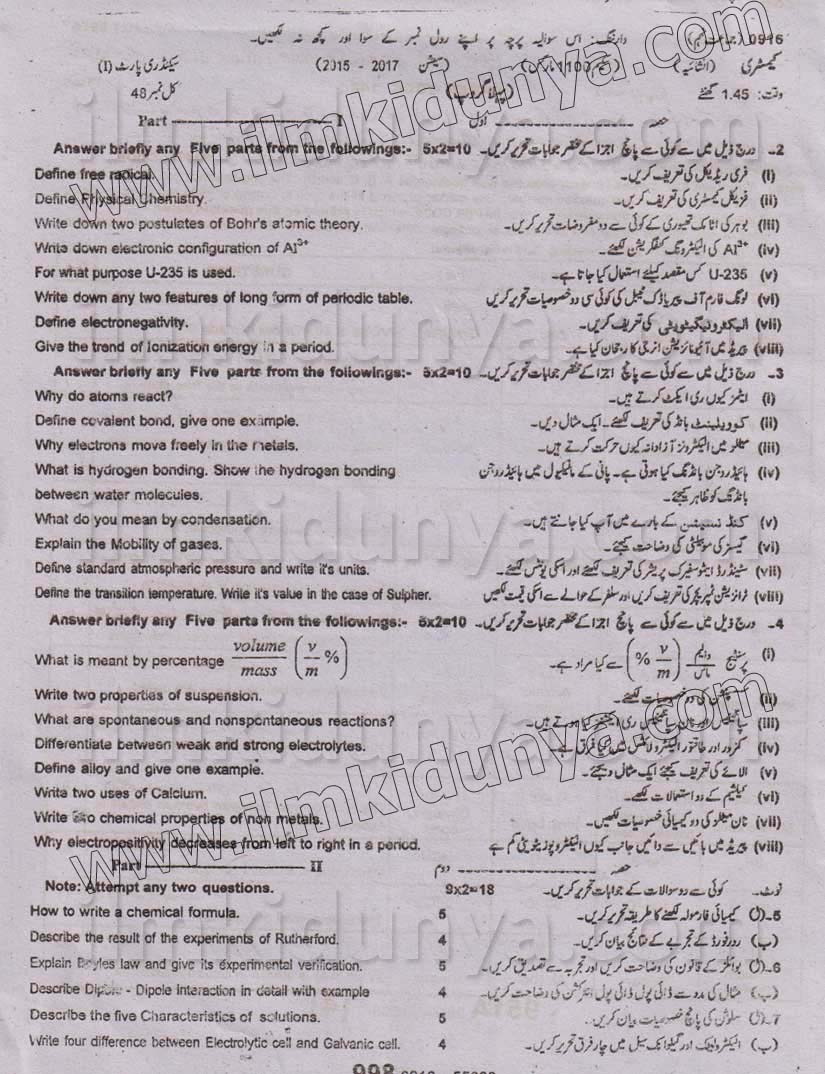 0916 (جماعت نہم) وارننگ: اس سوالیہ پرچہ پر اپنے رول نمبر کے سوا اور کچھ نہ لکھیں۔
کیمسٹری (انشائیہ) (سکیم 1100 مارکس) (سیشن 2017 - 2015) سیکنڈری پارٹ (I)
وقت: 1.45 گھنٹے (پہلا گروپ) کل نمبر 48
Part I حصہ اول
Answer briefly any Five parts from the followings:- 5x2=10 2۔ درج ذیل میں سے کوئی سے پانچ اجزا کے مختصر جوابات تحریر کریں۔
Define free radical. (i) فری ریڈیکل کی تعریف کریں۔
Define Physical Chemistry. (ii) فزیکل کیمسٹری کی تعریف کریں۔
Write down two postulates of Bohr's atomic theory. (iii) بوہر کی اٹامک تھیوری کے کوئی سے دو مفروضات تحریر کریں۔
Write down electronic configuration of Al3+ (iv) Al3+ کی الیکٹرونک کنفگریشن لکھیئے۔
For what purpose U-235 is used. (v) U-235 کس مقصد کیلئے استعمال کیا جاتا ہے۔
Write down any two features of long form of periodic table. (vi) لونگ فارم آف پیریاڈک ٹیبل کی کوئی سی دو خصوصیات تحریر کریں
Define electronegativity. (vii) الیکٹرونیگیٹویٹی کی تعریف کریں۔
Give the trend of Ionization energy in a period. (viii) پیریڈ میں آئیونائزیشن انرجی کا رجحان کیا ہے۔
Answer briefly any Five parts from the followings:- 5x2=10 3۔ درج ذیل میں سے کوئی سے پانچ اجزا کے مختصر جوابات تحریر کریں۔
Why do atoms react? (i) ایٹمز کیوں ری ایکٹ کرتے ہیں۔
Define covalent bond, give one example. (ii) کوویلینٹ بانڈ کی تعریف لکھیئے۔ ایک مثال دیں۔
Why electrons move freely in the metals. (iii) میٹلز میں الیکٹرونز آزادانہ کیوں حرکت کرتے ہیں۔
What is hydrogen bonding. Show the hydrogen bonding (iv) ہائیڈروجن بانڈنگ کیا ہوتی ہے۔ پانی کے مالیکیول میں ہائیڈروجن
between water molecules. بانڈنگ کو ظاہر کیجئے۔
What do you mean by condensation. (v) کنڈنسیشن کے بارے میں آپ کیا جانتے ہیں۔
Explain the Mobility of gases. (vi) گیسز کی موبیلٹی کی وضاحت کیجئے۔
Define standard atmospheric pressure and write it's units. (vii) سٹینڈرڈ ایٹموسفیرک پریشر کی تعریف لکھیئے اور اسکی یونٹس لکھیئے۔
Define the transition temperature. Write it's value in the case of Sulpher. (viii) ٹرانزیشن ٹمپریچر کی تعریف کریں اور سلفر کے حوالے سے اسکی قیمت لکھیں
Answer briefly any Five parts from the followings:- 5x2=10 4۔ درج ذیل میں سے کوئی سے پانچ اجزا کے مختصر جوابات تحریر کریں۔
What is meant by percentage volume/mass (v/m %) (i) پرسنٹیج والیم/ماس (v/m %) سے کیا مراد ہے۔
Write two properties of suspension. (ii) سسپنشن کی دو خصوصیات لکھیئے۔
What are spontaneous and nonspontaneous reactions? (iii) سپانٹینیس اور نان سپانٹینیس ری ایکشنز کیا ہوتے ہیں۔
Differentiate between weak and strong electrolytes. (iv) کمزور اور طاقتور الیکٹرولائٹس میں کیا فرق ہے۔
Define alloy and give one example. (v) الائے کی تعریف کیجئے ایک مثال دیجئے۔
Write two uses of Calcium. (vi) کیلشیم کے دو استعمالات لکھیئے۔
Write two chemical properties of non metals. (vii) نان میٹلز کی دو کیمیائی خصوصیات لکھیں۔
Why electropositivity decreases from left to right in a period. (viii) پیریڈ میں بائیں سے دائیں جانب کیوں الیکٹروپوزیٹویٹی کم ہے
Part II حصہ دوم
Note: Attempt any two questions. 9x2=18 نوٹ۔ کوئی سے دو سوالات کے جوابات تحریر کریں۔
How to write a chemical formula. 5 5۔(ا) کیمیائی فارمولہ لکھنے کا طریقہ تحریر کریں۔
Describe the result of the experiments of Rutherford. 4 (ب) ردرفورڈ کے تجربے کے نتائج بیان کریں۔
Explain Boyles law and give its experimental verification. 5 6۔(ا) بوائلز کے قانون کی وضاحت کریں اور تجربہ سے تصدیق کریں۔
Describe Dipole - Dipole interaction in detail with example 4 (ب) مثال کی مدد سے ڈائی پول ڈائی پول انٹرکشن کی وضاحت کریں۔
Describe the five Characteristics of solutions. 5 7۔(ا) سلوشن کی پانچ خصوصیات بیان کریں۔
Write four difference between Electrolytic cell and Galvanic cell. 4 (ب) الیکٹرولیٹک اور گیلوانک سیل میں چار فرق تحریر کریں۔
998
www.ilmkidunya.com